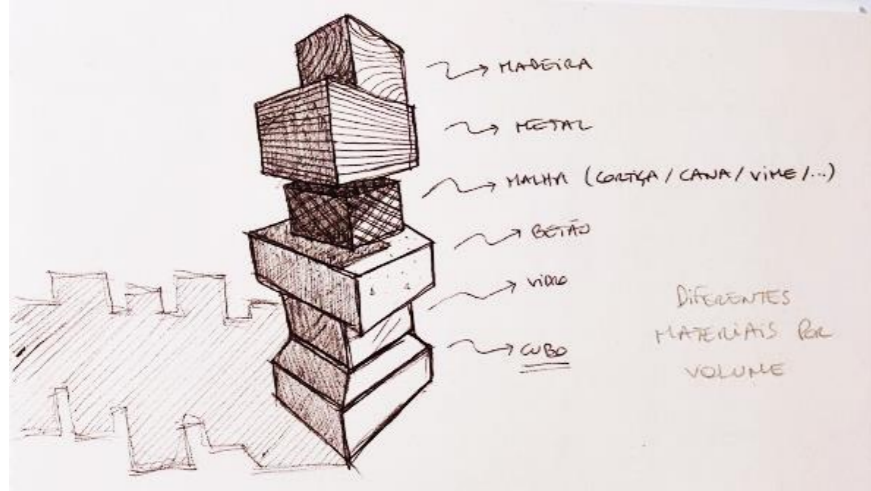 MADEIRA
METAL
MALHA (CORTIÇA / CANA / VIME / ...)
BETÃO
VIDRO
CUBO
DIFERENTES
MATERIAIS POR
VOLUME